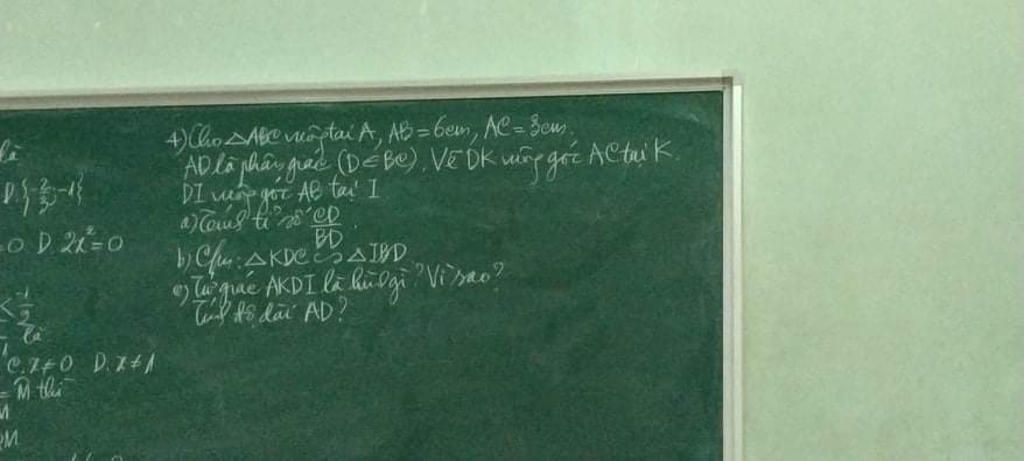 là
D.{-2/3;-1}
=0 D. 2x²=0
là
C. x≠0 D. x≠1
= M thì
M
4) Cho △ABC vuông tại A, AB = 6cm, AC = 3cm.
AD là phân giác (D ∈ BC). Vẽ DK vuông góc AC tại K.
DI vuông góc AB tại I
a) Tính tỉ số CD/BD.
b) C/m: △KDC ∽ △IBD
c) Tứ giác AKDI là hình gì? Vì sao?
Tính độ dài AD?